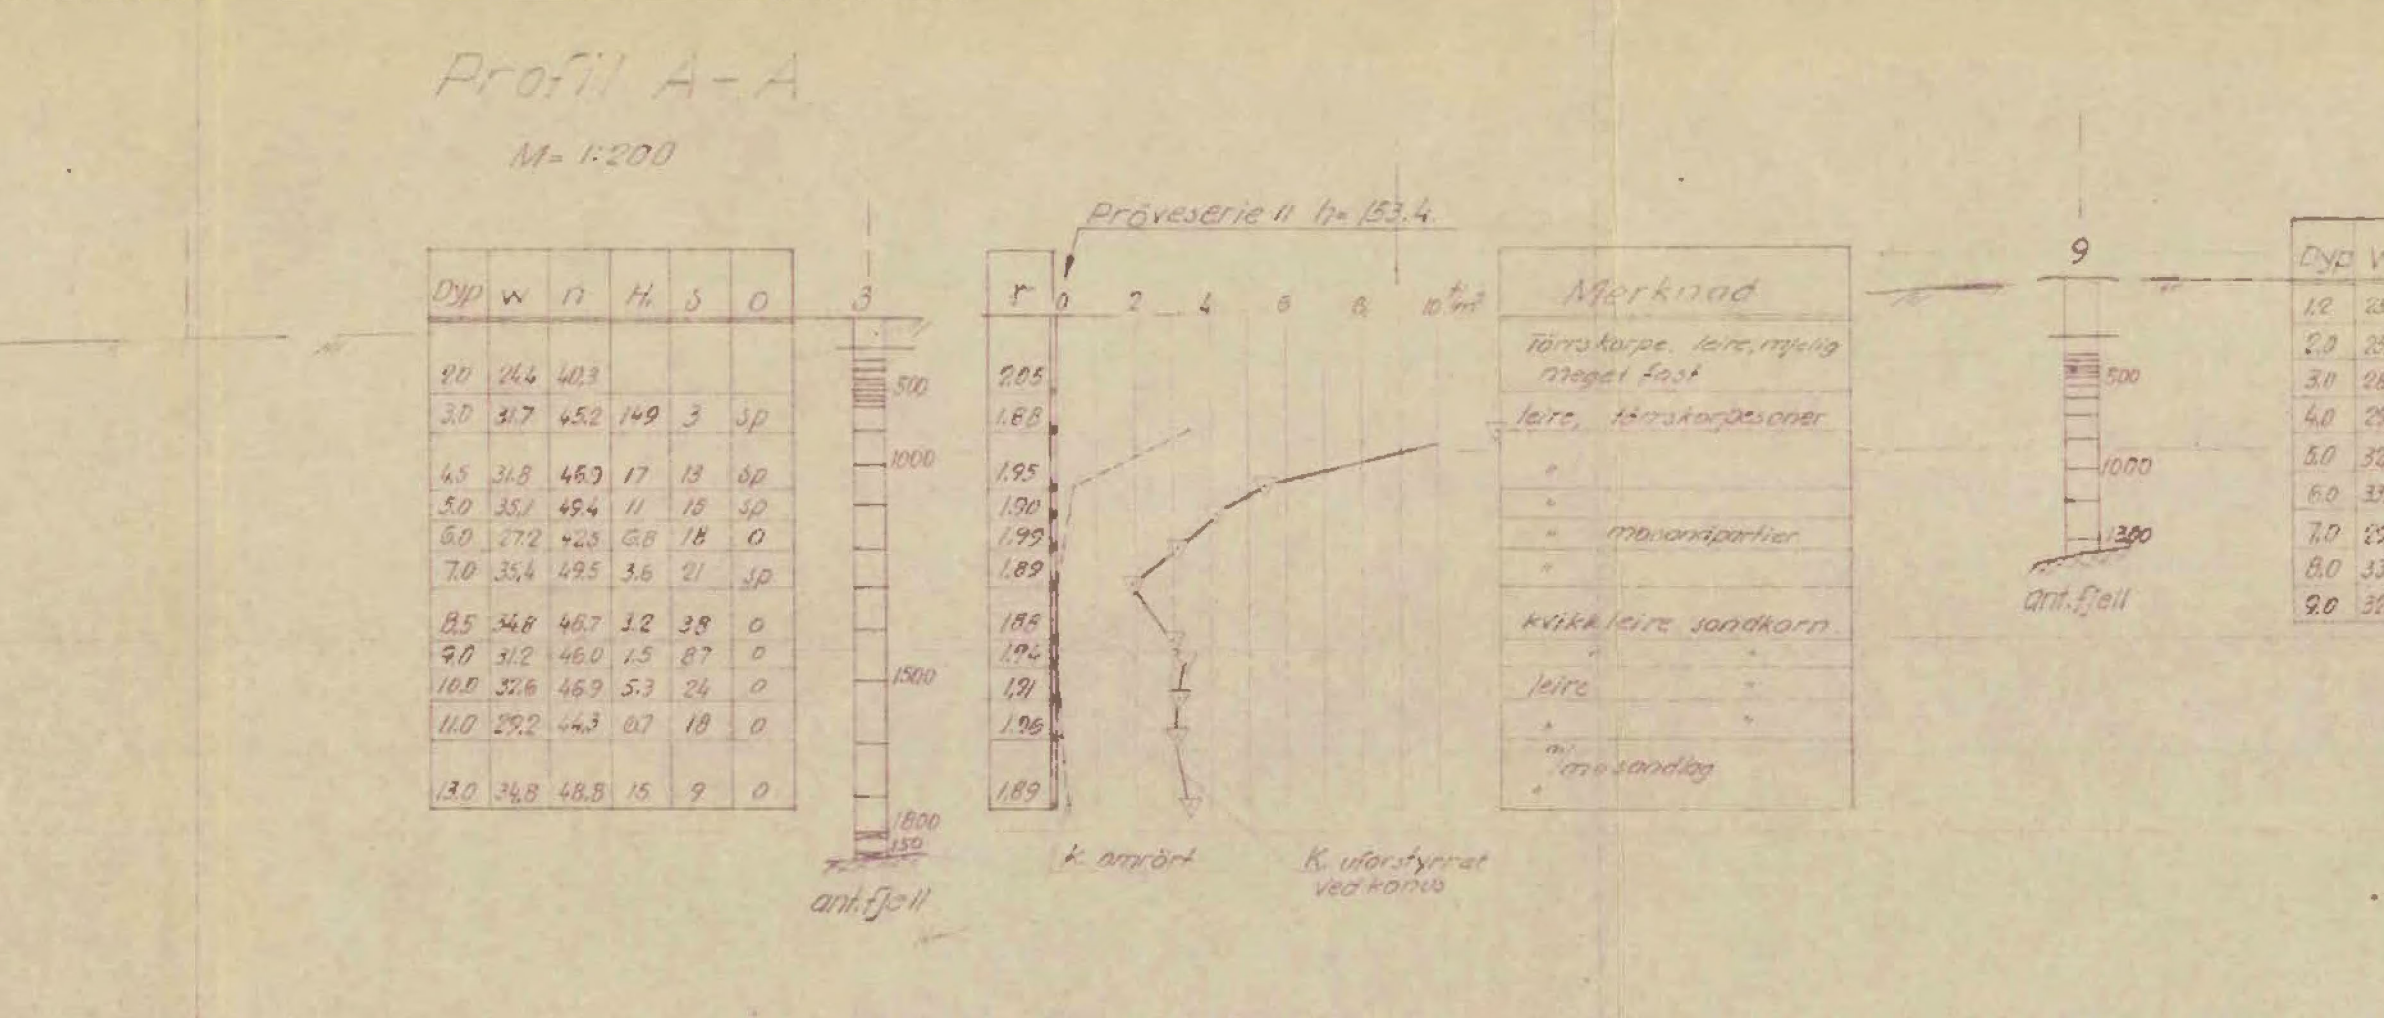 Profil A-A
M= 1:200
Prøveserie II h= 153.4
Dyp w n H₁ s O
2.0 24.4 40.3
3.0 31.7 45.2 149 3 sp
4.5 31.8 46.9 17 13 sp
5.0 35.1 49.4 11 15 sp
6.0 27.2 42.5 6.8 18 0
7.0 35.4 49.5 3.6 21 sp
8.5 34.8 48.7 3.2 38 0
9.0 31.2 46.0 1.5 87 0
10.0 32.6 46.9 5.3 24 0
11.0 29.2 44.3 6.7 18 0
13.0 34.8 48.8 15 9 0
3
500
1000
1500
1800
150
ant.fjell
r 0 2 4 6 8 10 t/m²
2.05
1.88
1.95
1.90
1.99
1.89
1.88
1.94
1.91
1.96
1.89
K. omrört
K. uforstyrret
ved konus
Merknad
Törrskorpe. leire, mjelig
meget fast
leire, törrskorpesoner
"
"
" mosandpartier
"
kvikkleire sandkorn
" "
leire "
" "
m/mosandlag
"
9
500
1000
1300
ant.fjell
Dyp
1.2
2.0
3.0
4.0
5.0
6.0
7.0
8.0
9.0